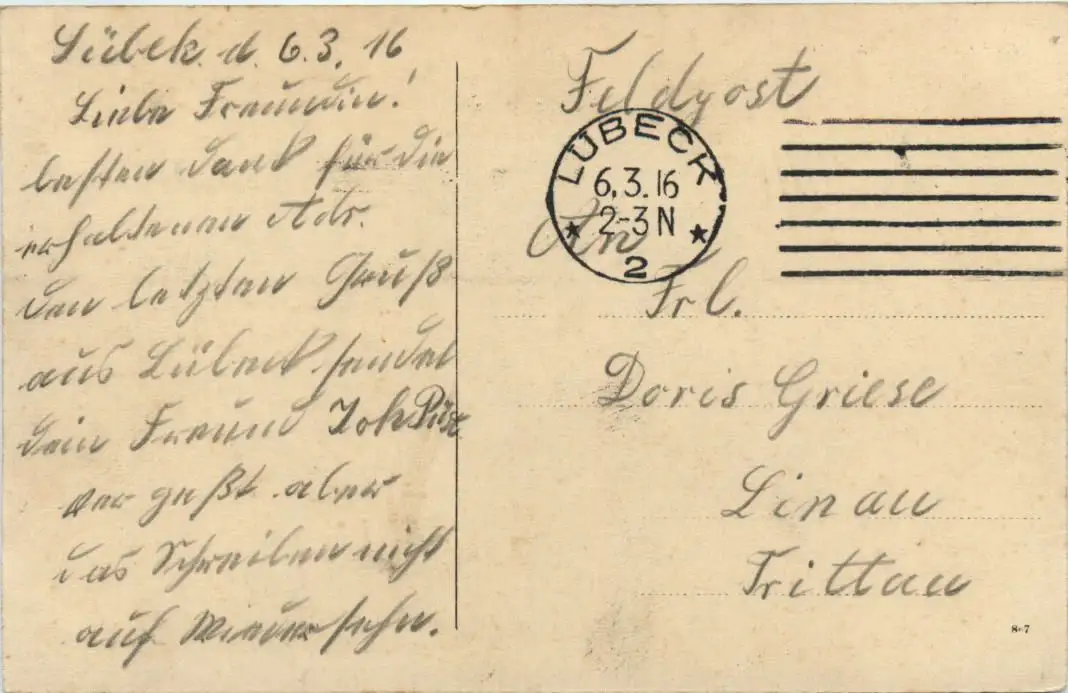 Lübek d. 6.3.16
Liebe Freundin!
besten Dank für die
erhaltenen Adr.
den letzten Gruß
aus Lübeck sendet
dein Freund Joh
ver geßt aber
das Schreiben nicht
auf Wieder sehn.
Feldpost
LÜBECK
6.3.16
2-3 N
* *
2
An
Frl.
Doris Griese
Linau
Trittau